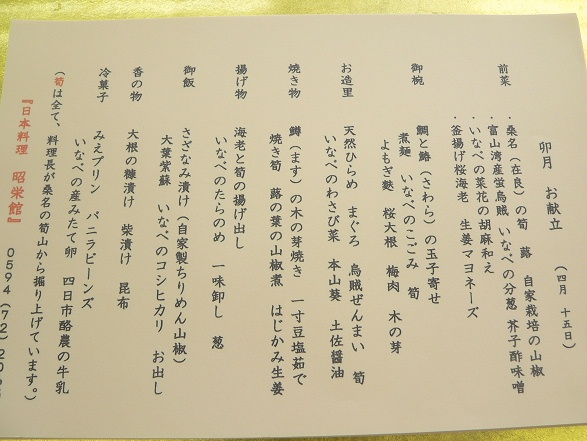 卯月　お献立
（四月　十五日）
前菜
・桑名（在良）の筍　蕗　自家栽培の山椒
・富山湾産蛍烏賊　いなべの分葱　芥子酢味噌
・いなべの菜花の胡麻和え
・釜揚げ桜海老　生姜マヨネーズ
御椀
鯛と鰆（さわら）の玉子寄せ
煮麺　いなべのこごみ　筍
よもぎ麩　桜大根　梅肉　木の芽
お造里
天然ひらめ　まぐろ　烏賊ぜんまい　筍
いなべのわさび菜　本山葵　土佐醤油
焼き物
鱒（ます）の木の芽焼き　一寸豆塩茹で
焼き筍　蕗の葉の山椒煮　はじかみ生姜
揚げ物
海老と筍の揚げ出し
いなべのたらのめ　一味卸し　葱
御飯
さざなみ漬け（自家製ちりめん山椒）
大葉紫蘇　いなべのコシヒカリ　お出し
香の物
大根の糠漬け　柴漬け　昆布
冷菓子
みえプリン　バニラビーンズ
いなべの産みたて卵　四日市酪農の牛乳
（筍は全て、料理長が桑名の筍山から掘り上げています。）
『日本料理　昭栄館』
0594（72）20